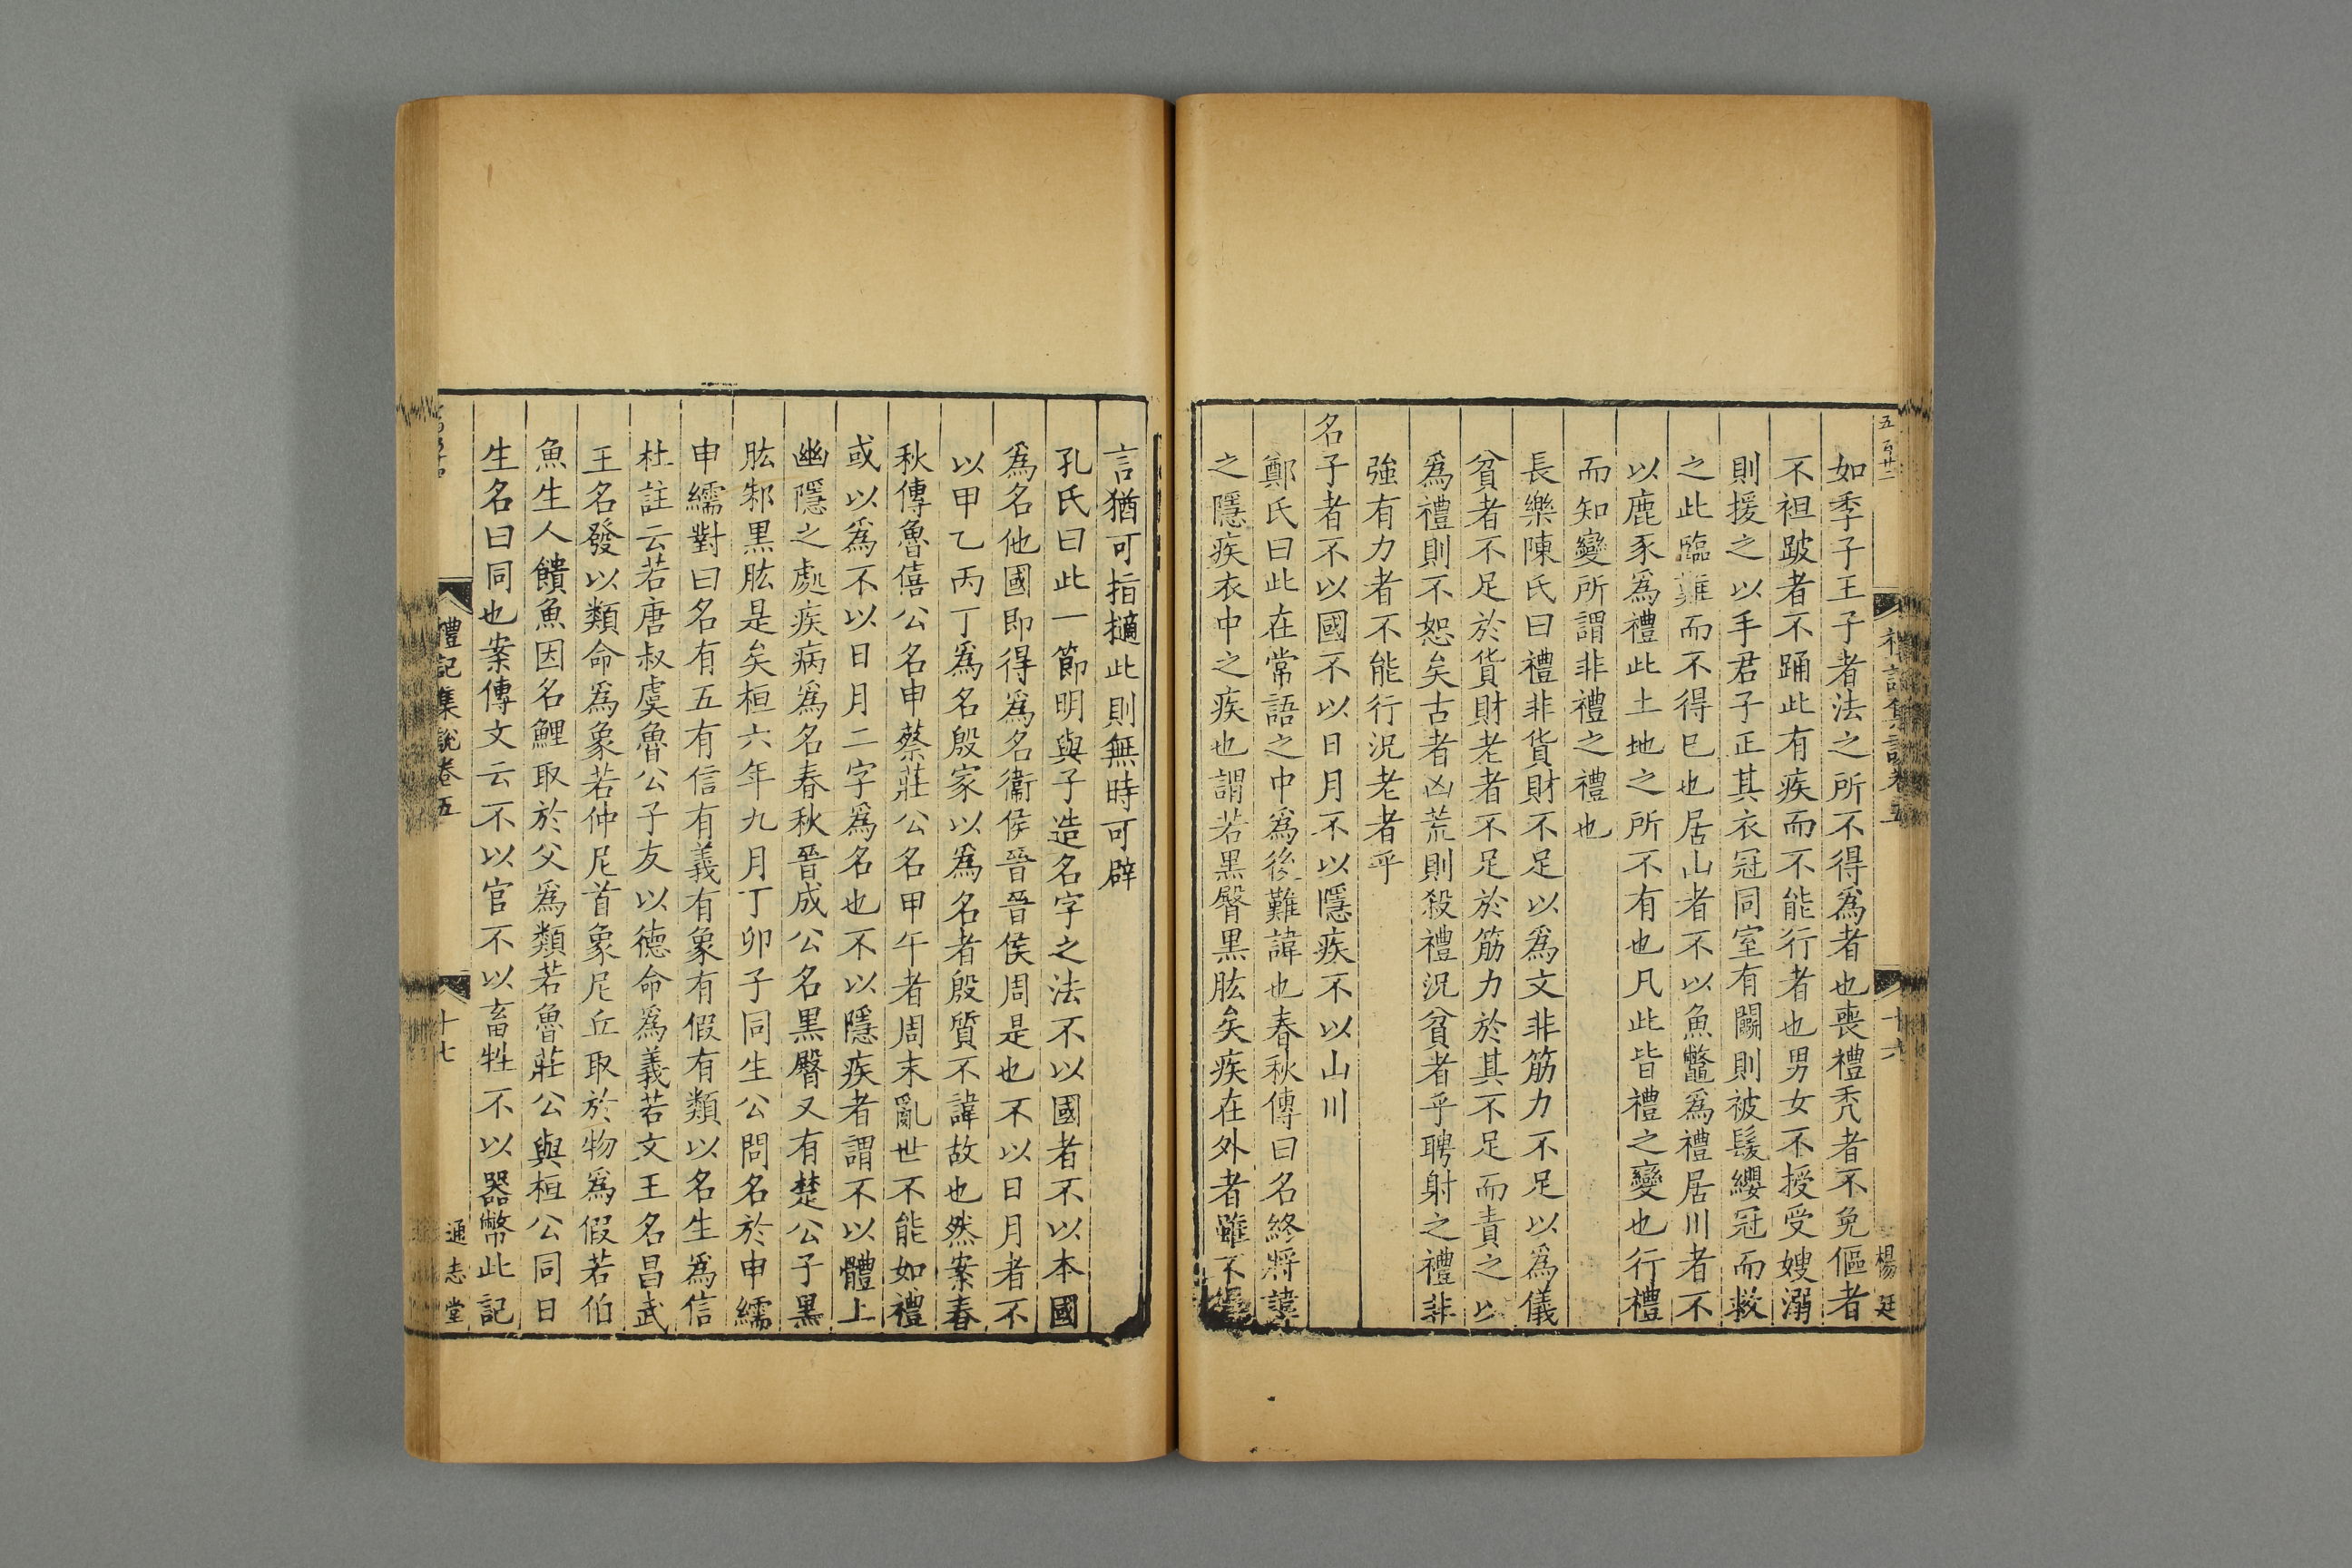 禮記集說卷五
十六
楊廷
如季子王子者法之所不得爲者也喪禮禿者不免傴者
不袒跛者不踊此有疾而不能行者也男女不授受嫂溺
則援之以手君子正其衣冠同室有鬭則被髮纓冠而救
之此臨難而不得已也居山者不以魚鼈爲禮居川者不
以鹿豕爲禮此土地之所不有也凡此皆禮之變也行禮
而知變所謂非禮之禮也
長樂陳氏曰禮非貨財不足以爲文非筋力不足以爲儀
貧者不足於貨財老者不足於筋力於其不足而責之以
爲禮則不恕矣古者凶荒則殺禮況貧者乎聘射之禮非
強有力者不能行況老者乎
名子者不以國不以日月不以隱疾不以山川
鄭氏曰此在常語之中爲後難諱也春秋傳曰名終將諱
之隱疾衣中之疾也謂若黑臀黑肱矣疾在外者雖不得
言猶可指擿此則無時可辟
孔氏曰此一節明與子造名字之法不以國者不以本國
爲名他國即得爲名衞侯晉晉侯周是也不以日月者不
以甲乙丙丁爲名殷家以爲名者殷質不諱故也然案春
秋傳魯僖公名申蔡莊公名甲午者周末亂世不能如禮
或以爲不以日月二字爲名也不以隱疾者謂不以體上
幽隱之處疾病爲名春秋晉成公名黑臀又有楚公子黑
肱邾黑肱是矣桓六年九月丁卯子同生公問名於申繻
申繻對曰名有五有信有義有象有假有類以名生爲信
杜註云若唐叔虞魯公子友以德命爲義若文王名昌武
王名發以類命爲象若仲尼首象尼丘取於物爲假若伯
魚生人饋魚因名鯉取於父爲類若魯莊公與桓公同日
生名曰同也案傳文云不以官不以畜牲不以器幣此記
禮記集說卷五
十七
通志堂